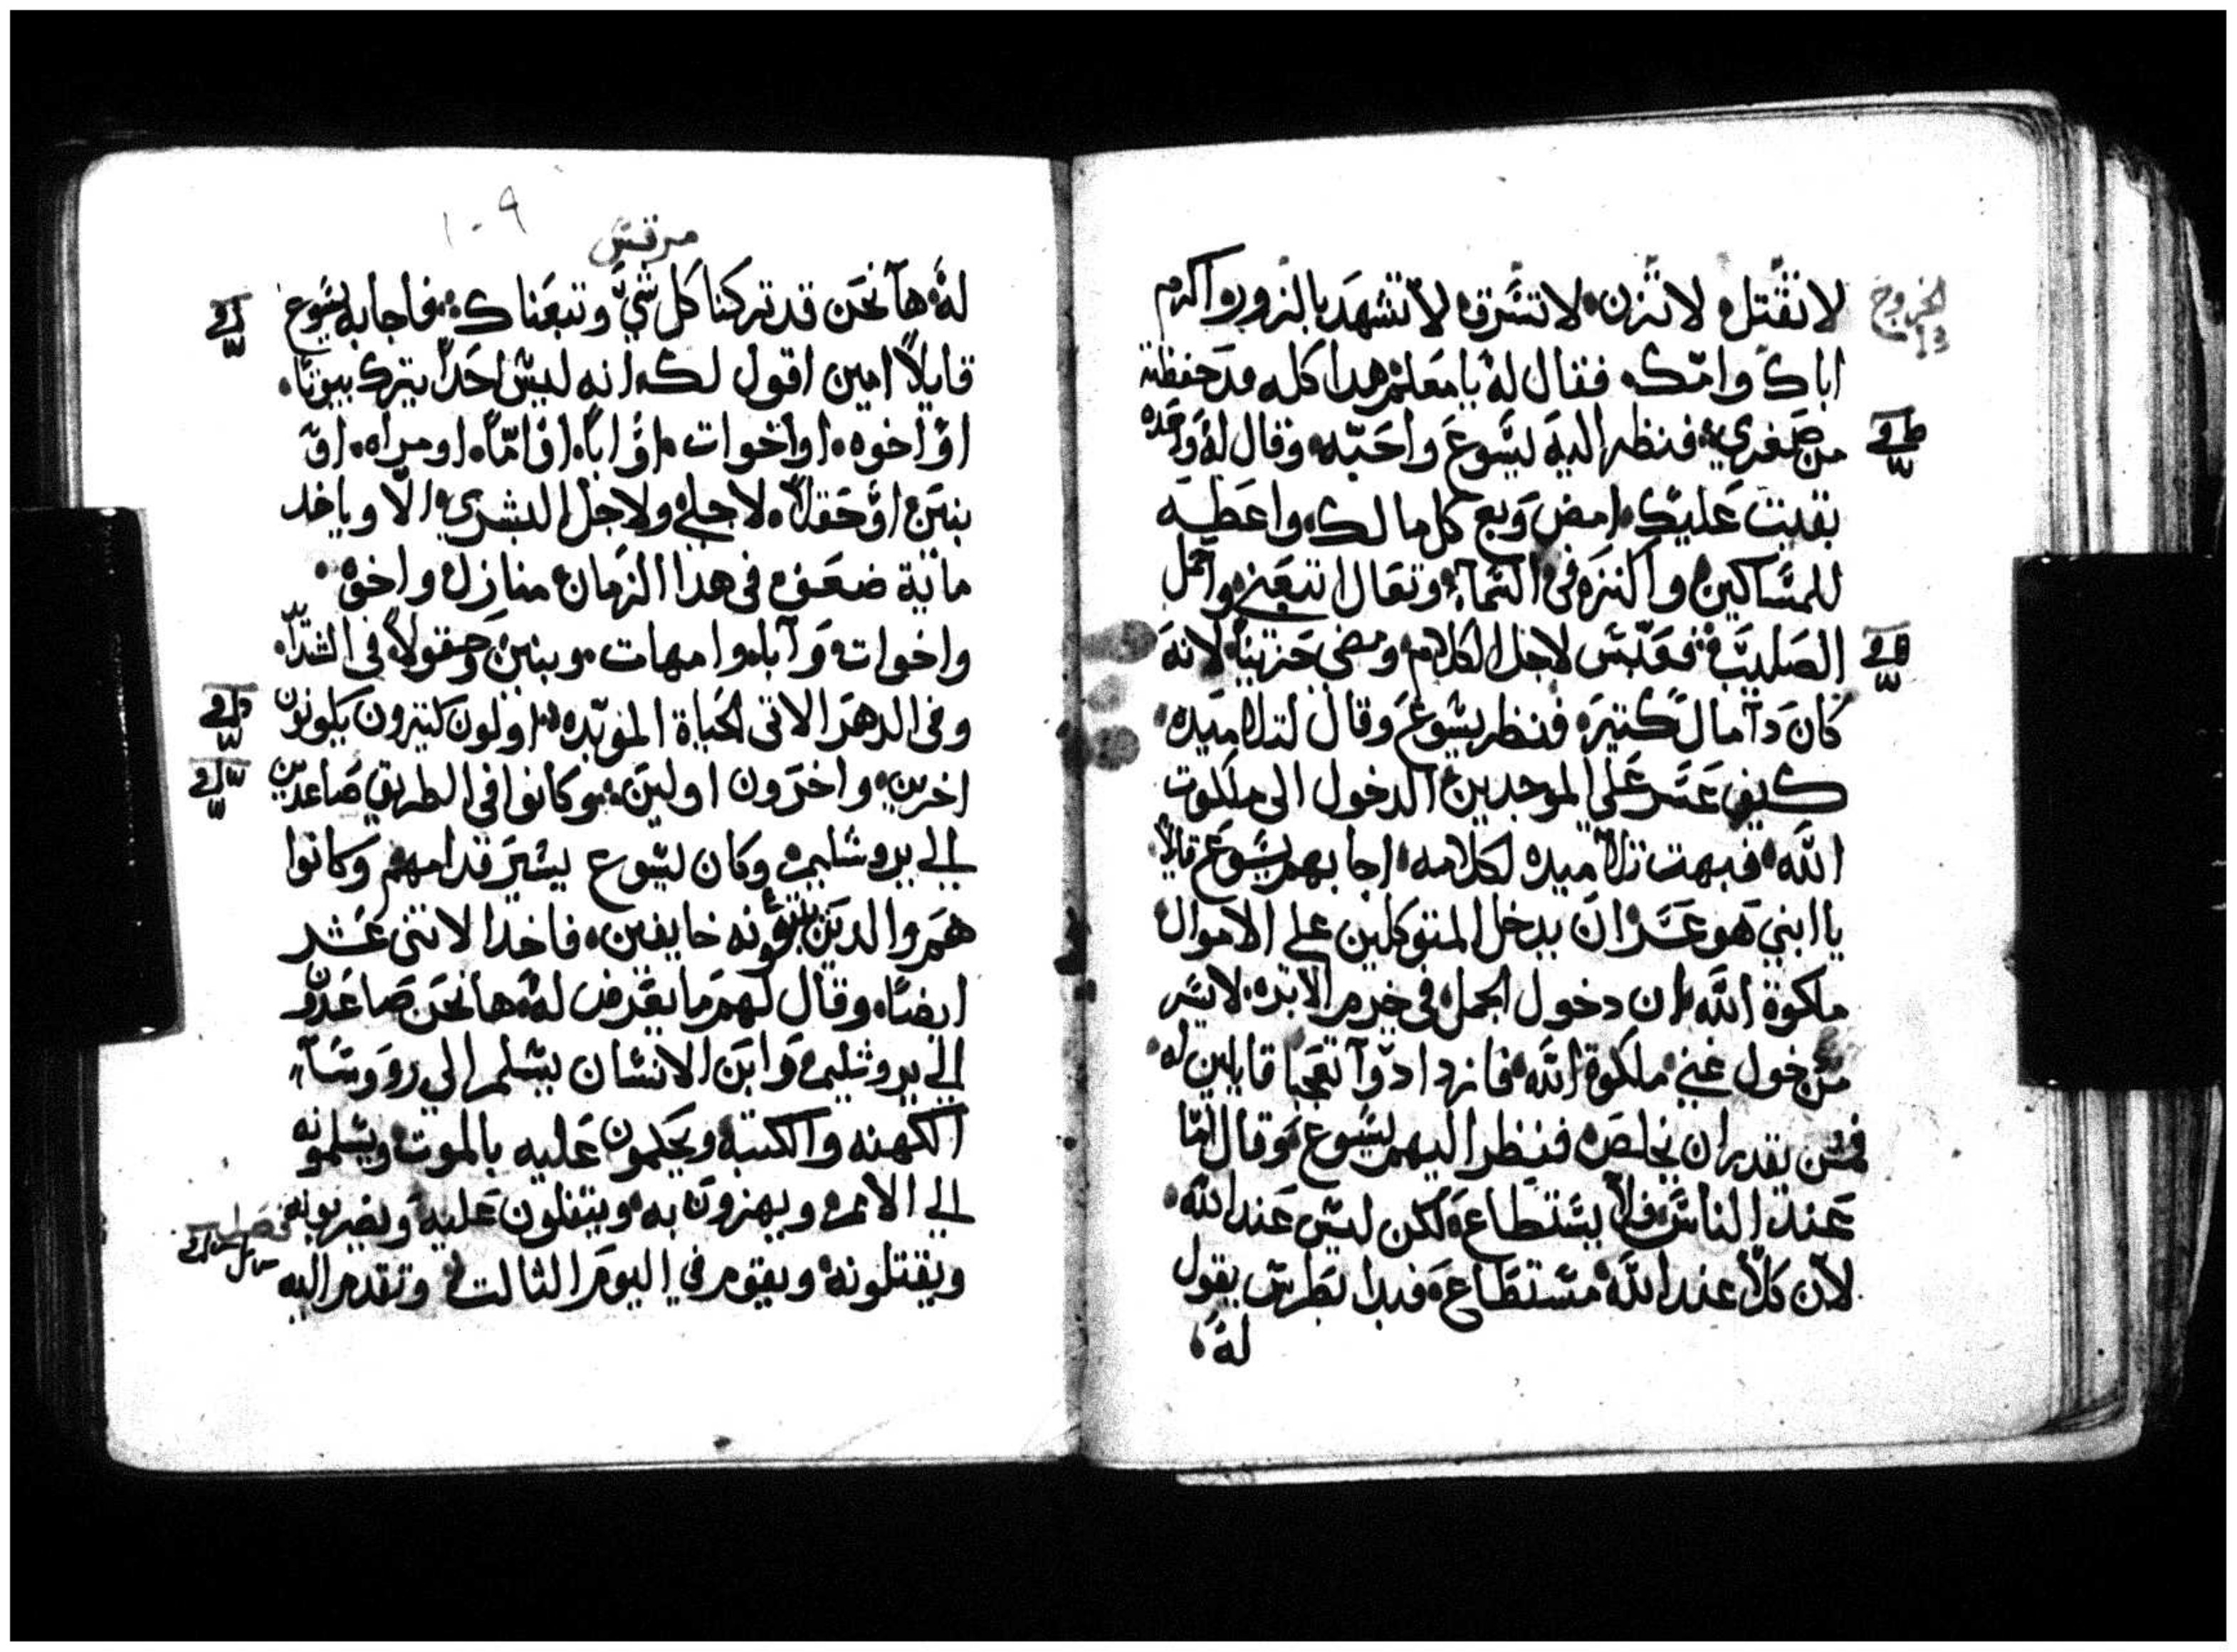 لا تقتل لا تزن لا تسرق لا تشهد بالزور واكرم
الخروج
اباك وامك فقال له يا معلم هدا كله قد حفظته
من صغري فنظر اليه يسوع واحبه وقال له واحده
بقيت عليك امض وبع كل ما لك واعطيه
للمساكين واكنزه في السماء وتعال اتبعني واحمل
الصليب فعبس لاجل الكلام ومضى حزينا لانه
كان دا مال كتيره فنظر يسوع وقال لتلاميده
كيف عسر على الموجدين الدخول الى ملكوت
الله فبهت تلاميده لكلامه اجابهم يسوع قايلا
يا ابني هو عسر ان يدخل المتوكلين على الاموال
ملكوة الله ان دخول الجمل في خرم الابره لايسر
من دخول غني ملكوة الله فازدادوا تعجبا قايلين له
فمن يقدر ان يخلص فنظر اليهم يسوع وقال اما
عند الناس فلا يستطاع لكن ليس عند الله
لان كلا عند الله مستطاع فبدا بطرس يقول
له
١٠٩
مرقس
له ها نحن قد تركنا كل شي وتبعناك فاجابه يسوع
قايلا امين اقول لك انه ليس احدا يترك بيوتا
او اخوه او اخوات او ابا او اما او مراه او
بنين او حقلا لاجلي ولاجل البشري الا وياخد
ماية ضعف في هدا الزمان منازل واخوه
واخوات وآبا وامهات وبنين وحقولا في الشدا
وفي الدهر الاتي الحياة الموبده اولون كتيرون يكونون
اخرين واخرون اولين وكانوا في الطريق صاعدين
الي يروشليم وكان يسوع يسير قدامهم وكانوا
هم والدين يتبعونه خايفين فاخدا الاتني عشر
ايضا وقال لهم ما يعرض له ها نحن صاعدون
الي يروشليم وابن الانسان يسلم الي روسآ
الكهنه والكتبه ويحكمون عليه بالموت ويسلمونه
الي الامم ويهزون به ويتفلون عليه ويضربونه
ويقتلونه ويقوم في اليوم الثالت وتقدم اليه